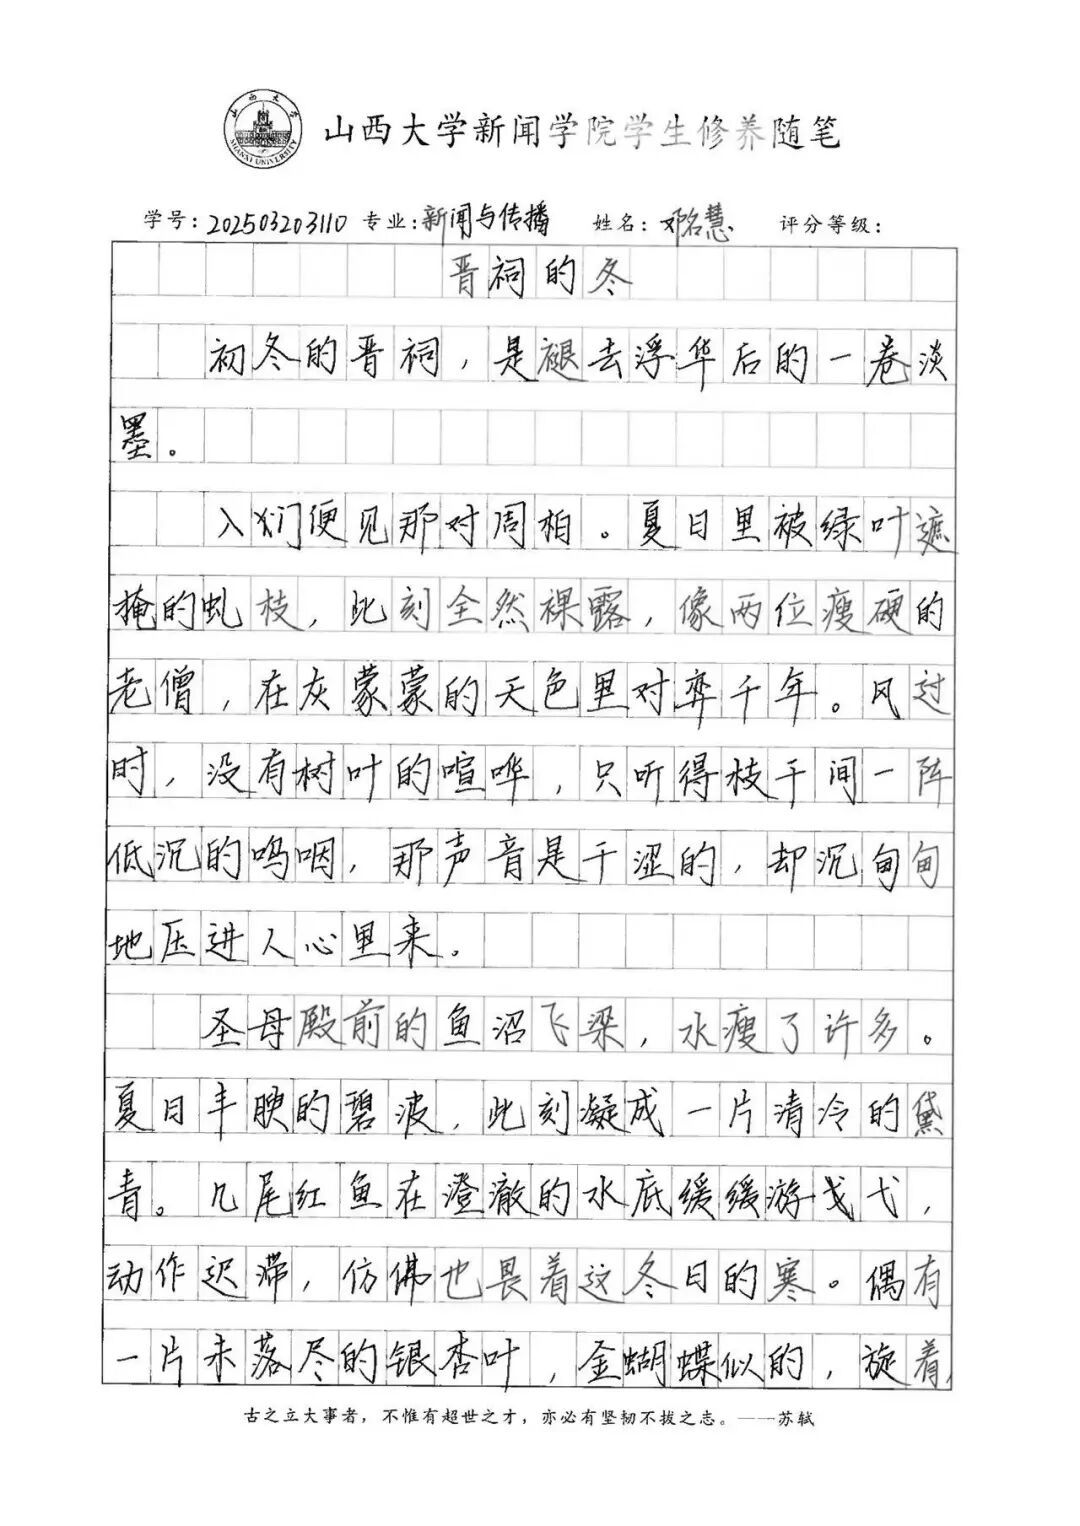 山西大学
SHANXI UNIVERSITY
山西大学新闻学院学生修养随笔
学号: 202503203110 专业: 新闻与传播 姓名: 邓名慧 评分等级:
晋祠的冬
初冬的晋祠，是褪去浮华后的一卷淡
墨。
入门便见那对周柏。夏日里被绿叶遮
掩的虬枝，此刻全然裸露，像两位瘦硬的
老僧，在灰蒙蒙的天色里对弈千年。风过
时，没有树叶的喧哗，只听得枝干间一阵
低沉的呜咽，那声音是干涩的，却沉甸甸
地压进人心里来。
圣母殿前的鱼沼飞梁，水瘦了许多。
夏日丰腴的碧波，此刻凝成一片清冷的黛
青。几尾红鱼在澄澈的水底缓缓游弋，
动作迟滞，仿佛也畏着这冬日的寒。偶有
一片未落尽的银杏叶，金蝴蝶似的，旋着，
古之立大事者，不惟有超世之才，亦必有坚韧不拔之志。——苏轼